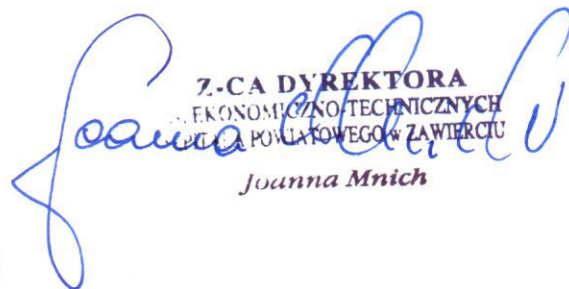 Z-CA DYREKTORA
EKONOMICZNO-TECHNICZNYCH
POWIATOWEGO w ZAWIERCIU
Joanna Mnich
Joanna Mnich